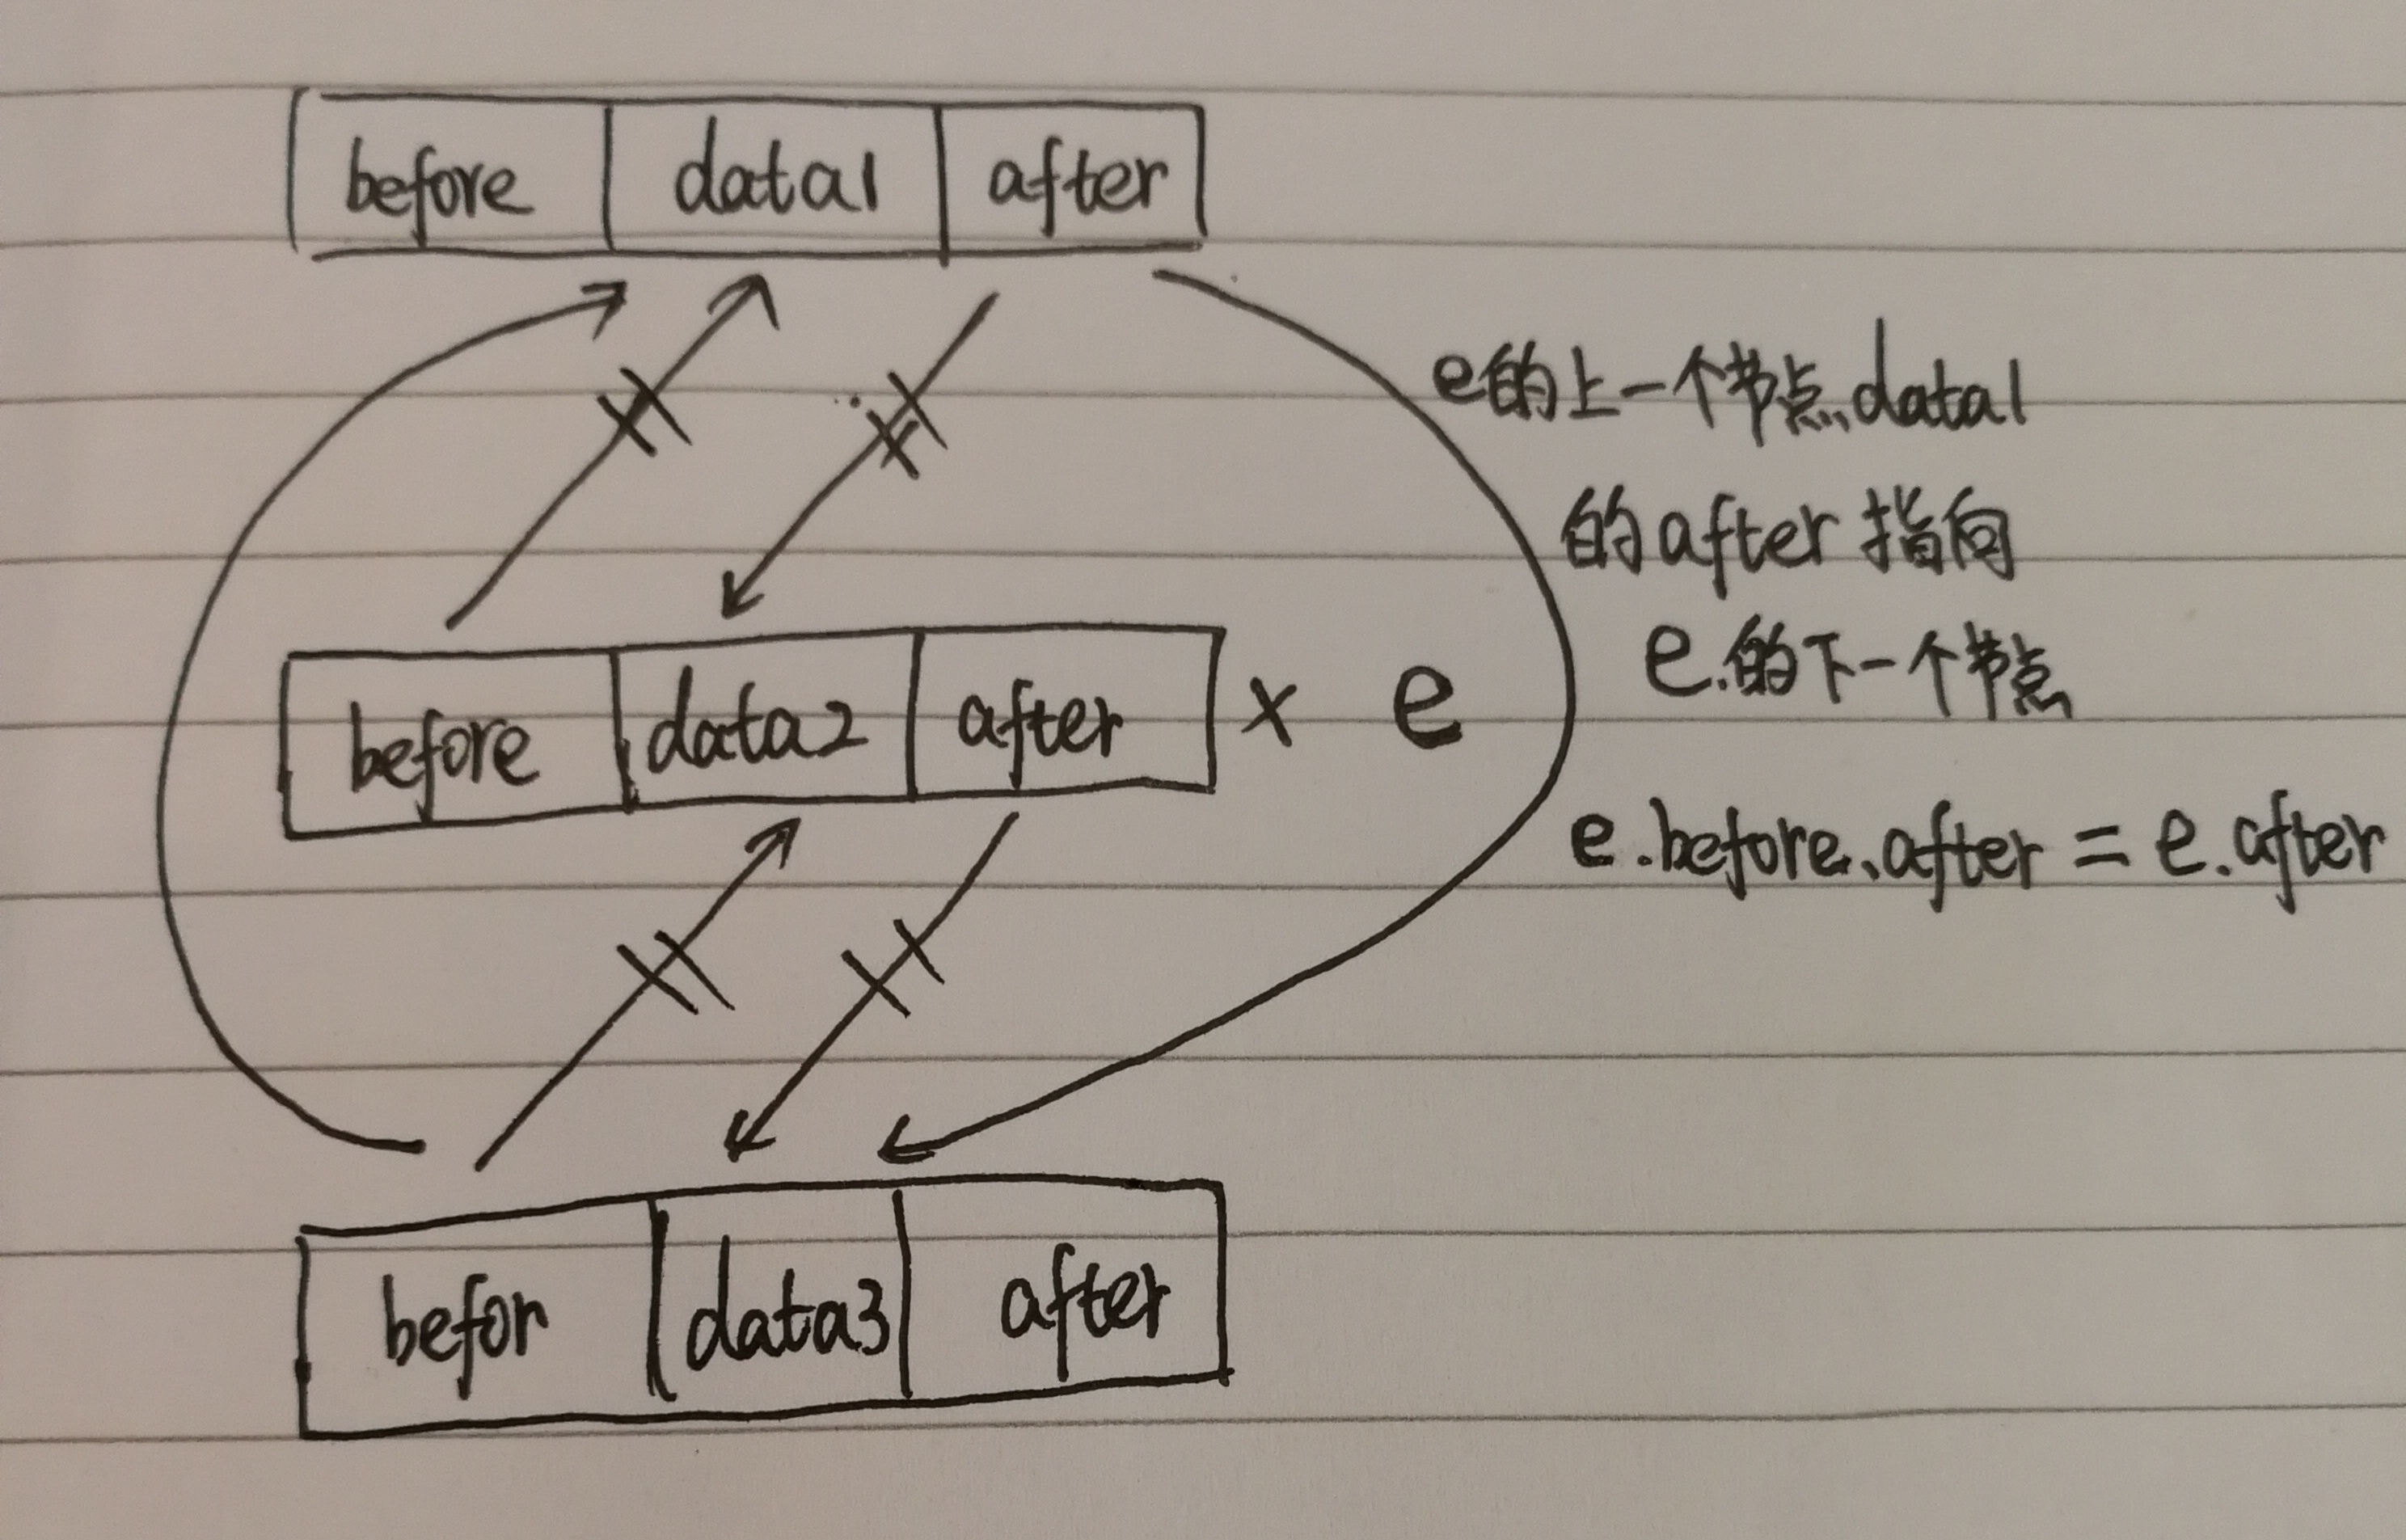 before data1 after
e的上一个节点data1
的after指向
e的下一个节点
before data2 after × e
e.before.after = e.after
befor data3 after